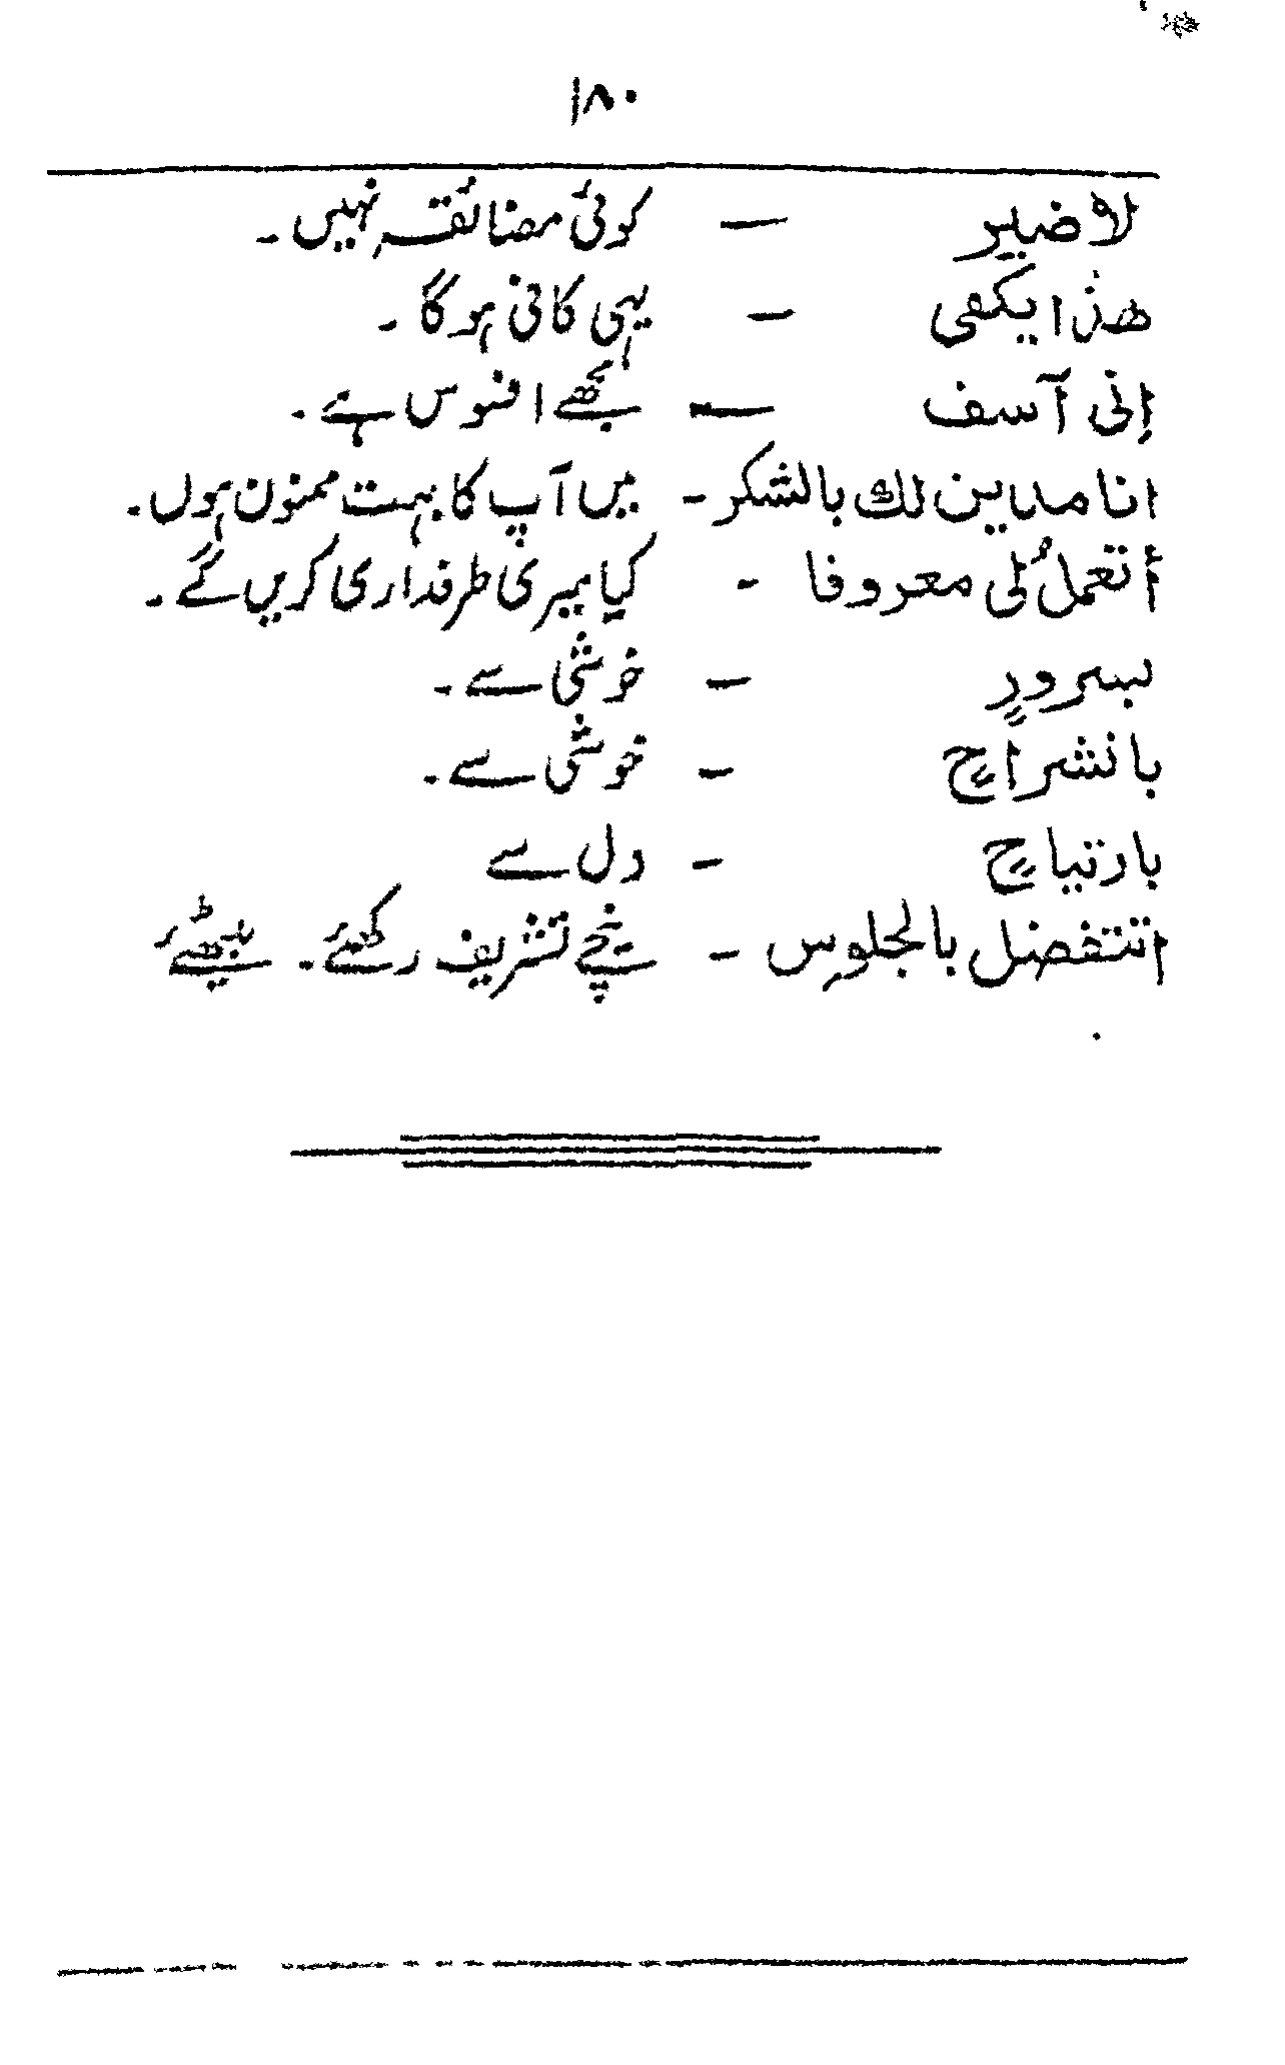 ۱۸۰
لا ضیر — کوئی مضائقہ نہیں۔
ھذا یکفی — یہی کافی ہوگا۔
اِنی آسف — مجھے افسوس ہے۔
انا مدین لك بالشکر - میں آپ کا بہت ممنون ہوں۔
أتعملُ لی معروفا - کیا میری طرفداری کریں گے۔
بسرورٍ - خوشی سے۔
بانشراحٍ - خوشی سے۔
بارتیاحٍ - دل سے
اتتفضل بالجلوسِ - نیچے تشریف رکھئے۔ بیٹھئے